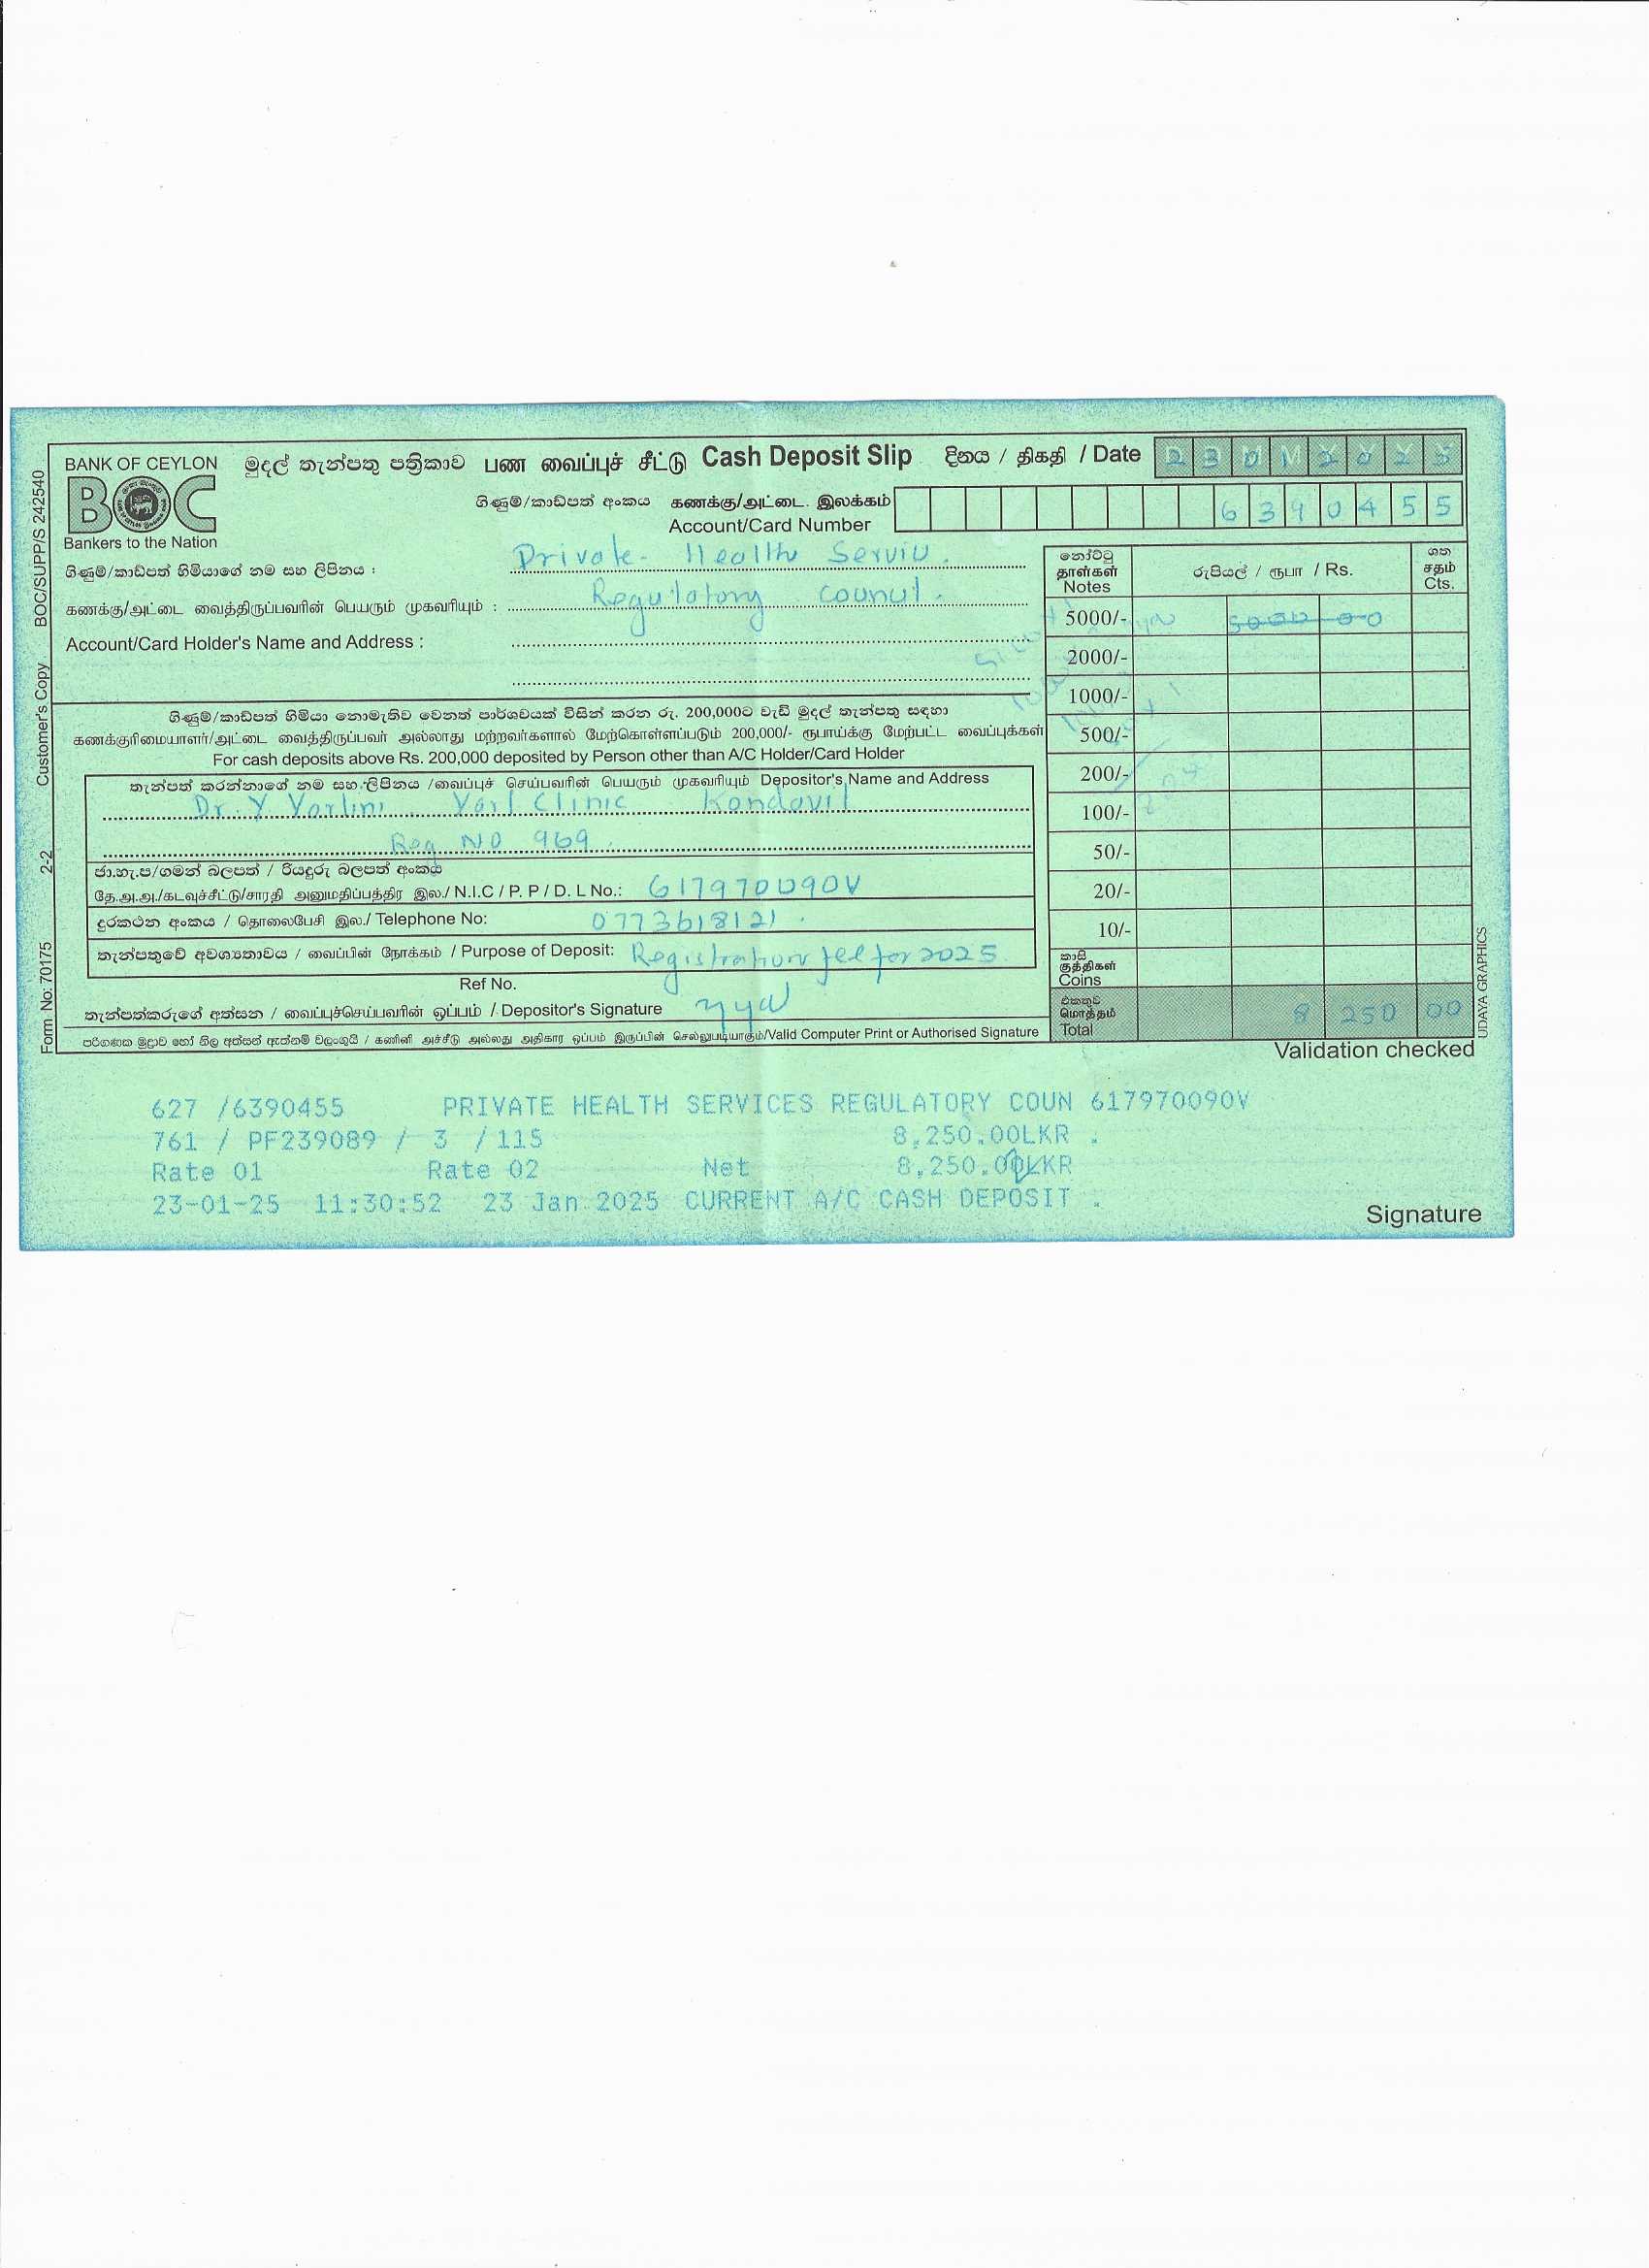 BANK OF CEYLON
BOC
Bankers to the Nation
මුදල් තැන්පතු පත්‍රිකාව பண வைப்புச் சீட்டு Cash Deposit Slip
දිනය / திகதி / Date 2 3 0 1 2 0 2 5
ගිණුම්/කාඩ්පත් අංකය கணக்கு/அட்டை. இலக்கம்
Account/Card Number 6 3 9 0 4 5 5
ගිණුම්/කාඩ්පත් හිමියාගේ නම සහ ලිපිනය :
Private Health
கணக்கு/அட்டை வைத்திருப்பவரின் பெயரும் முகவரியும் :
Regulatory Council.
Account/Card Holder's Name and Address :
ගිණුම්/කාඩ්පත් හිමියා නොමැතිව වෙනත් පාර්ශවයක් විසින් කරන රු. 200,000ට වැඩි මුදල් තැන්පතු සඳහා
கணக்குரிமையாளர்/அட்டை வைத்திருப்பவர் அல்லாது மற்றவர்களால் மேற்கொள்ளப்படும் 200,000/- ரூபாய்க்கு மேற்பட்ட வைப்புக்கள்
For cash deposits above Rs. 200,000 deposited by Person other than A/C Holder/Card Holder
තැන්පත් කරන්නාගේ නම සහ ලිපිනය /வைப்புச் செய்பவரின் பெயரும் முகவரியும் Depositor's Name and Address
Dr. Y Yarlini Yarl Clinic Kondavil
Reg NO 969.
ජා.හැ.ප/ගමන් බලපත් / රියදුරු බලපත් අංකය
தே.அ.அ./கடவுச்சீட்டு/சாரதி அனுமதிப்பத்திர இல./ N.I.C / P. P / D. L No.: 617970090V
දුරකථන අංකය / தொலைபேசி இல./ Telephone No: 0773618121.
තැන්පතුවේ අවශ්‍යතාවය / வைப்பின் நோக்கம் / Purpose of Deposit: Registration fee for 2025
Ref No.
තැන්පත්කරුගේ අත්සන / வைப்புச்செய்பவரின் ஒப்பம் / Depositor's Signature
පරිගණක මුද්‍රාව හෝ නිල අත්සන් ඇත්නම් වලංගුයි / கணினி அச்சீடு அல்லது அதிகார ஒப்பம் இருப்பின் செல்லுபடியாகும்/Valid Computer Print or Authorised Signature
නෝට්ටු
தாள்கள்
Notes
රුපියල් / ரூபா / Rs.
ශත
சதம்
Cts.
5000/- 5000 00
2000/-
1000/-
500/-
200/-
100/-
50/-
20/-
10/-
කාසි
குத்திகள்
Coins
එකතුව
மொத்தம்
Total 8 250 00
Validation checked
627 /6390455 PRIVATE HEALTH SERVICES REGULATORY COUN 617970090V
761 / PF239089 / 3 / 115 8,250.00LKR .
Rate 01 Rate 02 Net 8,250.00LKR
23-01-25 11:30:52 23 Jan 2025 CURRENT A/C CASH DEPOSIT .
Signature
Form No: 70175 2-2 Customer's Copy BOC/SUPP/S 242540
UDAYA GRAPHICS